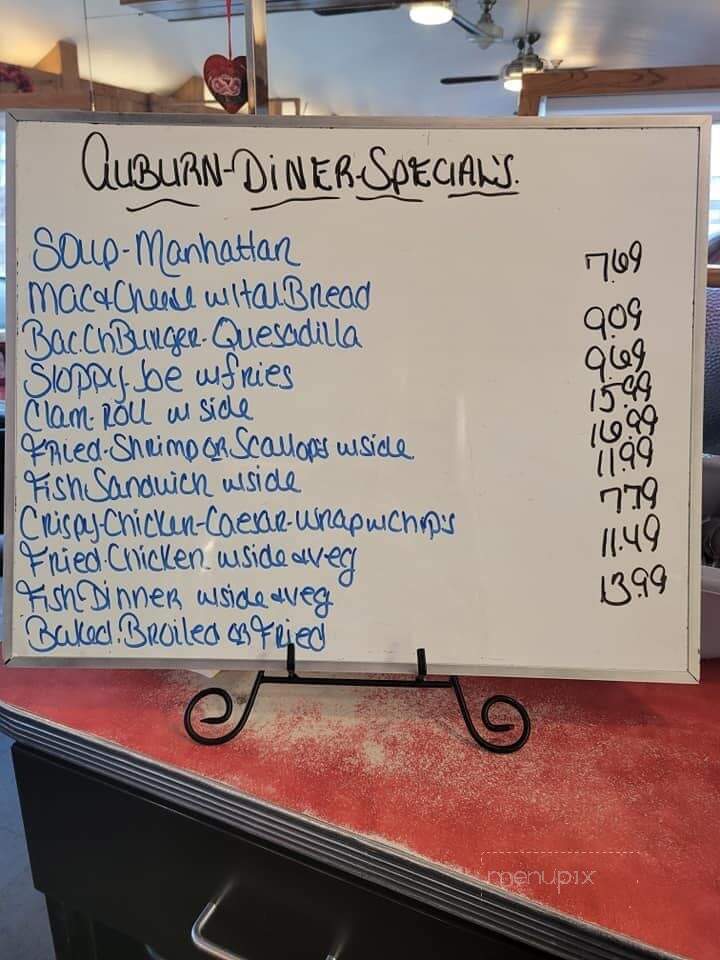 AUBURN-DINER-SPECIAL'S.
Soup-Manhattan
Mac&Cheese w/Ital Bread 7.69
Bac.ChBurger-Quesadilla 9.09
Sloppy.Joe w fries 9.69
Clam-Roll w side 15.99
Fried-Shrimp OR Scallops w side 16.99
Fish Sandwich w side 11.99
Crispy-Chicken-Caesar-Wrap w chips 7.79
Fried.Chicken w side & veg 11.49
Fish Dinner w side & veg 13.99
Baked.Broiled or Fried
menupix